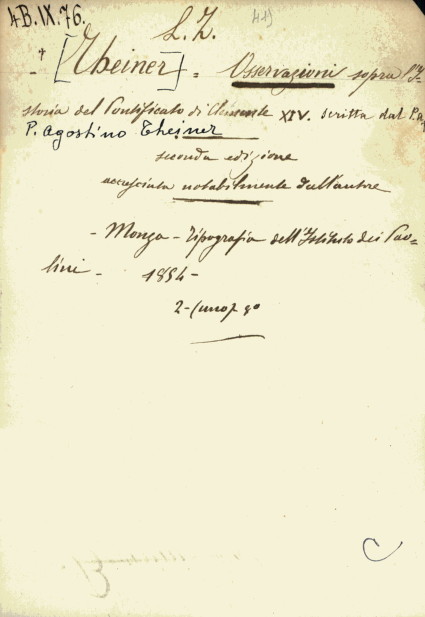 4B.IX.76.
L. Z. 419
† [Theiner] = Osservazioni sopra l'I-
storia del Pontificato di Clemente XIV. scritta dal P.
P. Agostino Theiner
seconda edizione
accresciuta notabilmente dall'autore
- Monza - Tipografia dell'Istituto dei Pao-
lini - 1854 -
C